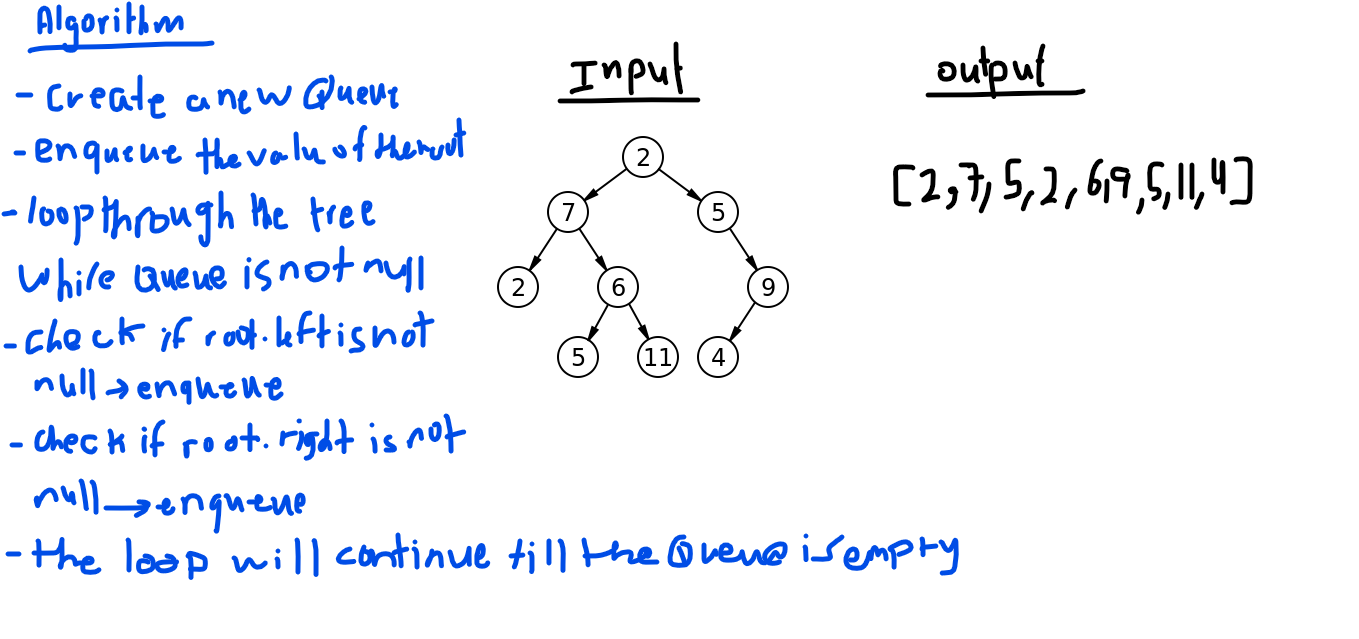 Algorithm
- create a new Queue
- enqueue the value of the root
- loop through the tree
while Queue is not null
- check if root.left is not
null → enqueue
- check if root.right is not
null → enqueue
- the loop will continue till the Queue is empty
Input
2
7 5
2 6 9
5 11 4
output
[2,7,5,2,6,9,5,11,4]